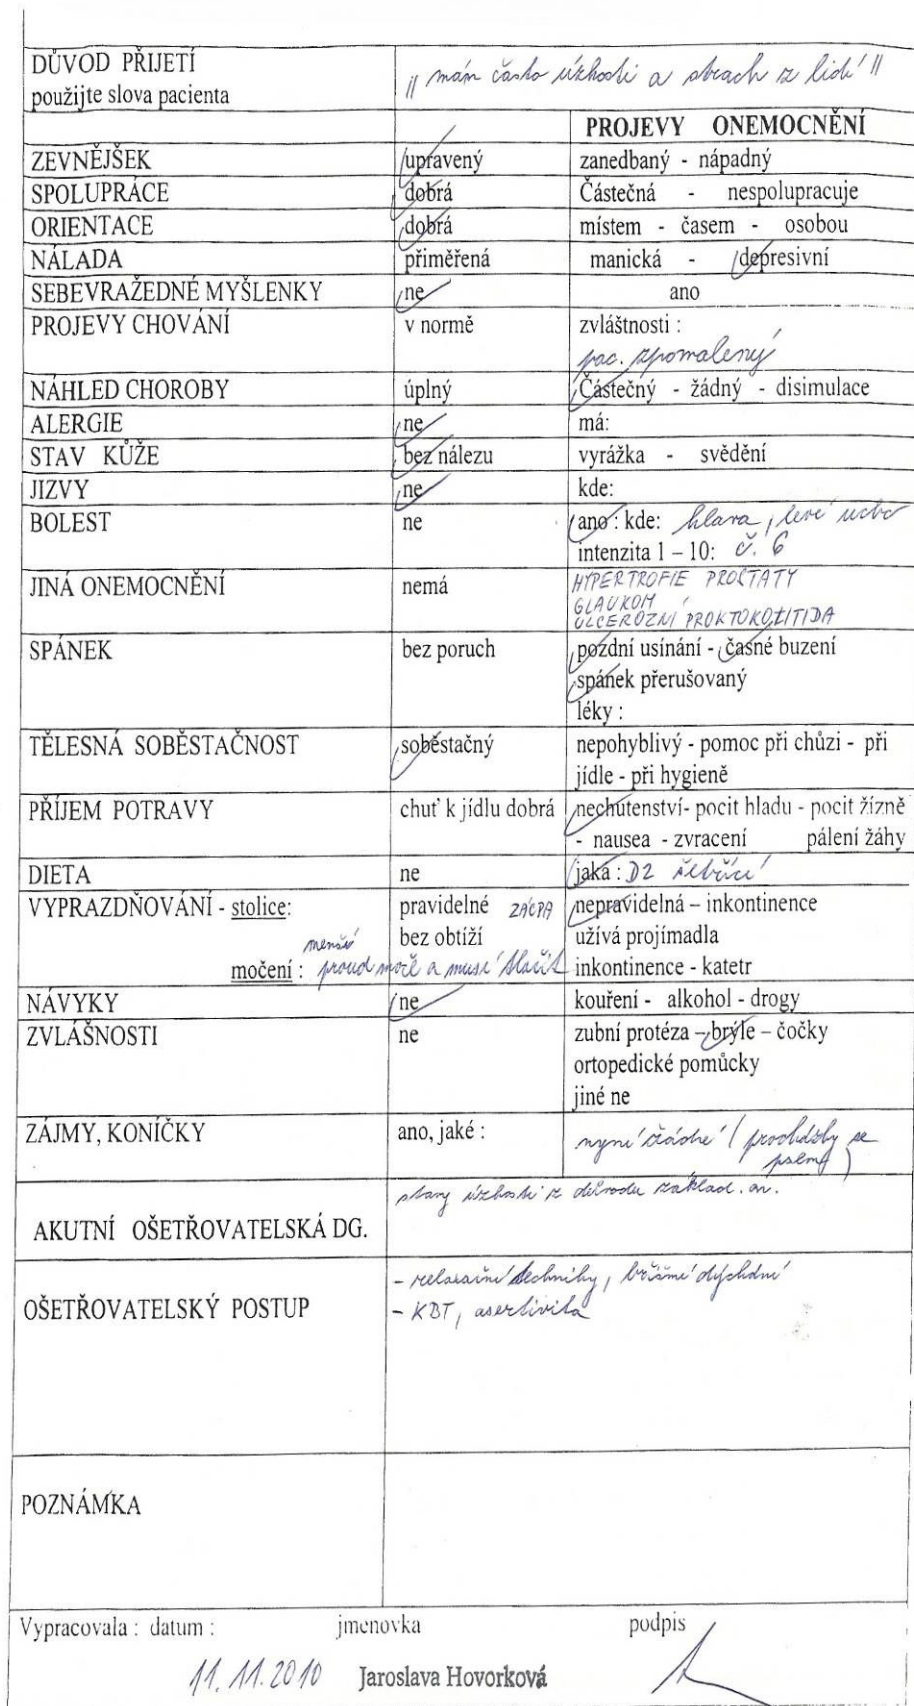 DŮVOD PŘIJETÍ
použijte slova pacienta
" mám často úzkosti a strach z lidí "
PROJEVY ONEMOCNĚNÍ
ZEVNĚJŠEK upravený zanedbaný - nápadný
SPOLUPRÁCE dobrá Částečná - nespolupracuje
ORIENTACE dobrá místem - časem - osobou
NÁLADA přiměřená manická - depresivní
SEBEVRAŽEDNÉ MYŠLENKY ne ano
PROJEVY CHOVÁNÍ v normě zvláštnosti :
pac. zpomalený
NÁHLED CHOROBY úplný Částečný - žádný - disimulace
ALERGIE ne má:
STAV KŮŽE bez nálezu vyrážka - svědění
JIZVY ne kde:
BOLEST ne ano : kde: hlava, levé ucho
intenzita 1 – 10: č. 6
JINÁ ONEMOCNĚNÍ nemá HYPERTROFIE PROSTATY
GLAUKOM
ULCERÓZNÍ PROKTOKOLITIDA
SPÁNEK bez poruch pozdní usínání - časné buzení
spánek přerušovaný
léky :
TĚLESNÁ SOBĚSTAČNOST soběstačný nepohyblivý - pomoc při chůzi - při
jídle - při hygieně
PŘÍJEM POTRAVY chuť k jídlu dobrá nechutenství- pocit hladu - pocit žízně
- nausea - zvracení pálení žáhy
DIETA ne jaká : D2 šetřící
VYPRAZDŇOVÁNÍ - stolice: pravidelné ZÁCPA nepravidelná – inkontinence
bez obtíží užívá projímadla
menší
močení : proud moče a musí tlačit inkontinence - katetr
NÁVYKY ne kouření - alkohol - drogy
ZVLÁŠNOSTI ne zubní protéza – brýle – čočky
ortopedické pomůcky
jiné ne
ZÁJMY, KONÍČKY ano, jaké : nyní žádné ( procházky se
psem )
AKUTNÍ OŠETŘOVATELSKÁ DG. stavy úzkosti z důvodu základ. on.
OŠETŘOVATELSKÝ POSTUP
- relaxační techniky, břišní dýchání
- KBT, asertivita
POZNÁMKA
Vypracovala : datum : jmenovka podpis
11. 11. 2010 Jaroslava Hovorková